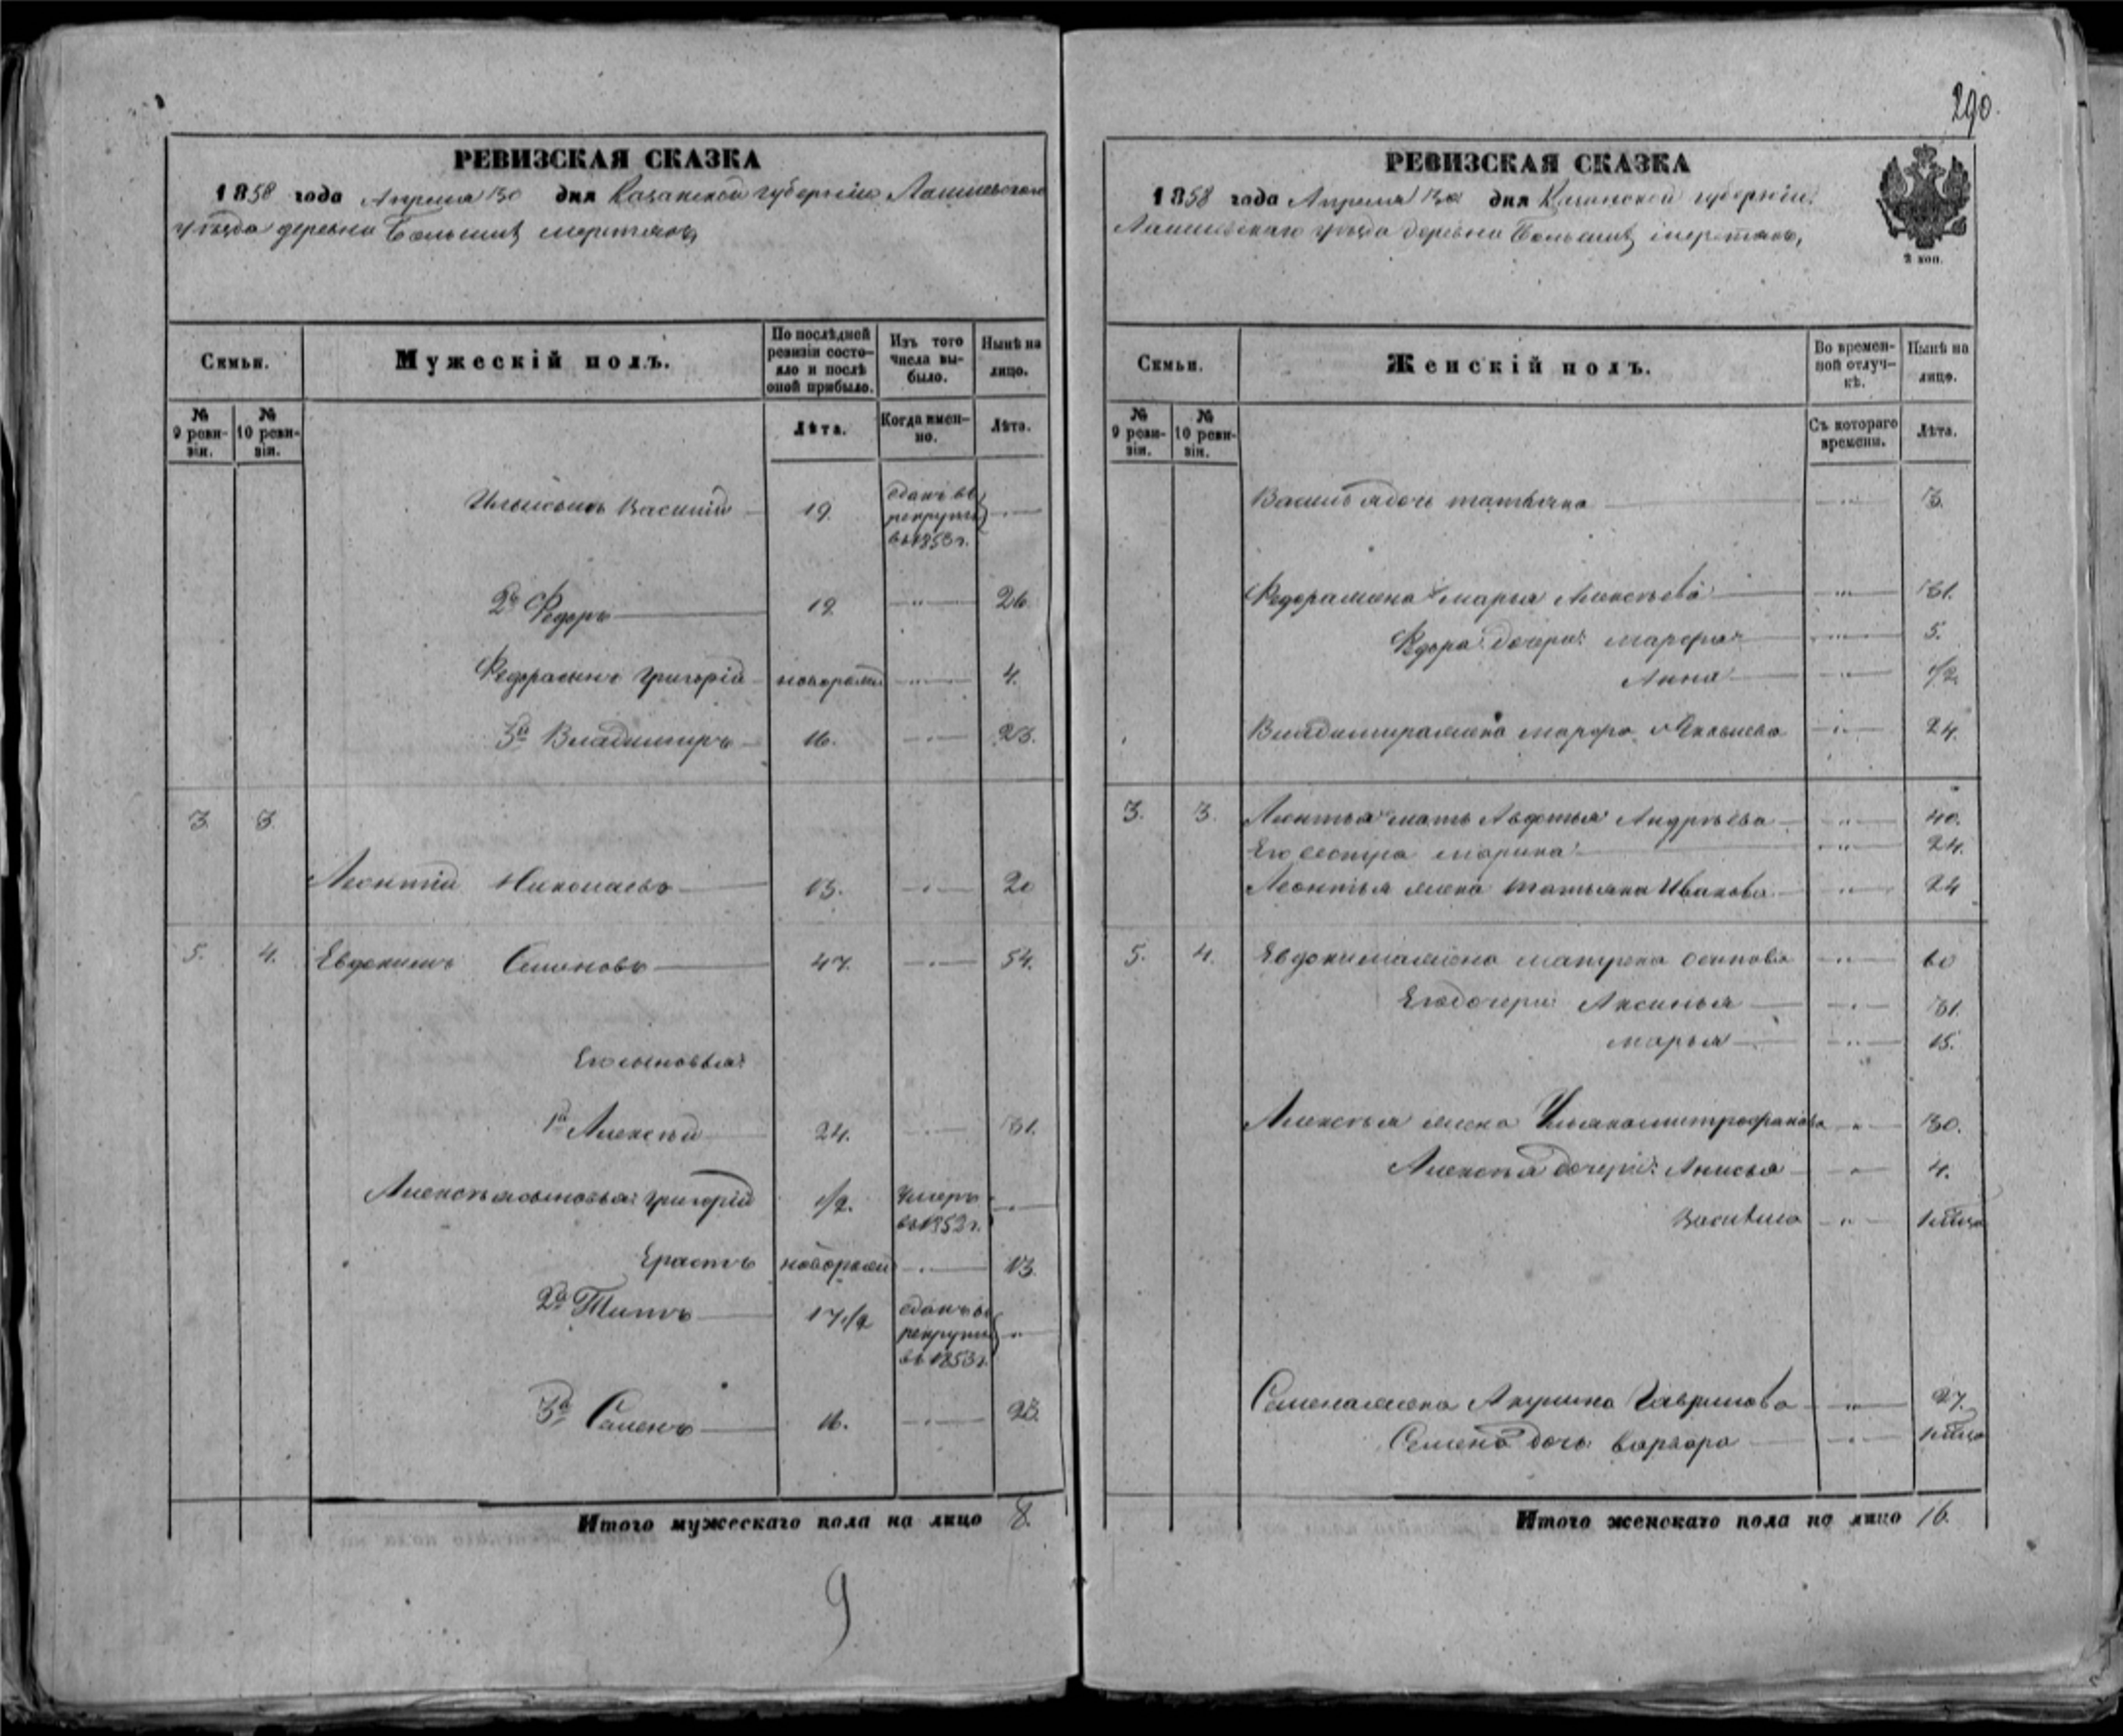 РЕВИЗСКАЯ СКАЗКА
1858 года Апреля 30 дня Казанской губерніи Лаишевскаго
уѣзда деревни Большихъ меретяковъ
Сѣмьи. Мужескій полъ. По послѣдней ревизіи состояло и послѣ оной прибыло. Изъ того числа выбыло. Нынѣ на лицо.
№ 9 ревизіи. № 10 ревизіи. Лѣта. Когда именно. Лѣта.
Василій 19 сданъ въ рекруты въ 1853 г. — " —
2й Федоръ 19 — " — 26
Федора сынъ Григорій новорожд — " — 4.
3й Владимиръ 16. — " — 23.
3 3
Леонтій Николаевъ 13. — " — 20
5. 4. Евдокимъ Семеновъ 47. — " — 54.
Его сыновья:
1й Алексѣй 24. — " — 31.
Алексѣя сыновья: Григорій 1/2. умеръ въ 1852 г. — " —
Ерастъ новорожд — " — 13.
2й Титъ 17 1/2 сданъ въ рекруты въ 1853 г. — " —
3й Семенъ 16. — " — 23.
Итого мужескаго пола на лицо 8.
9
290.
РЕВИЗСКАЯ СКАЗКА
1858 года Апреля 30 дня Казанской губерніи
Лаишевскаго уѣзда деревни Большихъ меретяковъ,
2 коп.
Сѣмьи. Женскій полъ. Во временной отлучкѣ. Нынѣ на лицо.
№ 9 ревизіи. № 10 ревизіи. Съ котораго времени. Лѣта.
Василья дочь татьяна — " — 13.
Федора жена марья Алексѣева — " — 31.
Федора дочери: марфа — " — 5.
Анна — " — 1/2
Владимира жена марфа — " — 24.
3. 3. Леонтья мать Авдотья Андрѣева — " — 40.
Его сестра марина — " — 24.
Леонтья жена татьяна Иванова — " — 24
5. 4. Евдокима жена матрена осипова — " — 60
Его дочери Аксинья — " — 31.
марья — " — 15.
Алексѣя жена Ульяна митрофанова — " — 30.
Алексѣя дочери: Анисья — " — 4.
— " —
Семена жена Акулина Гаврилова — " — 27.
Семена дочь варвара — " —
Итого женскаго пола на лицо 16.